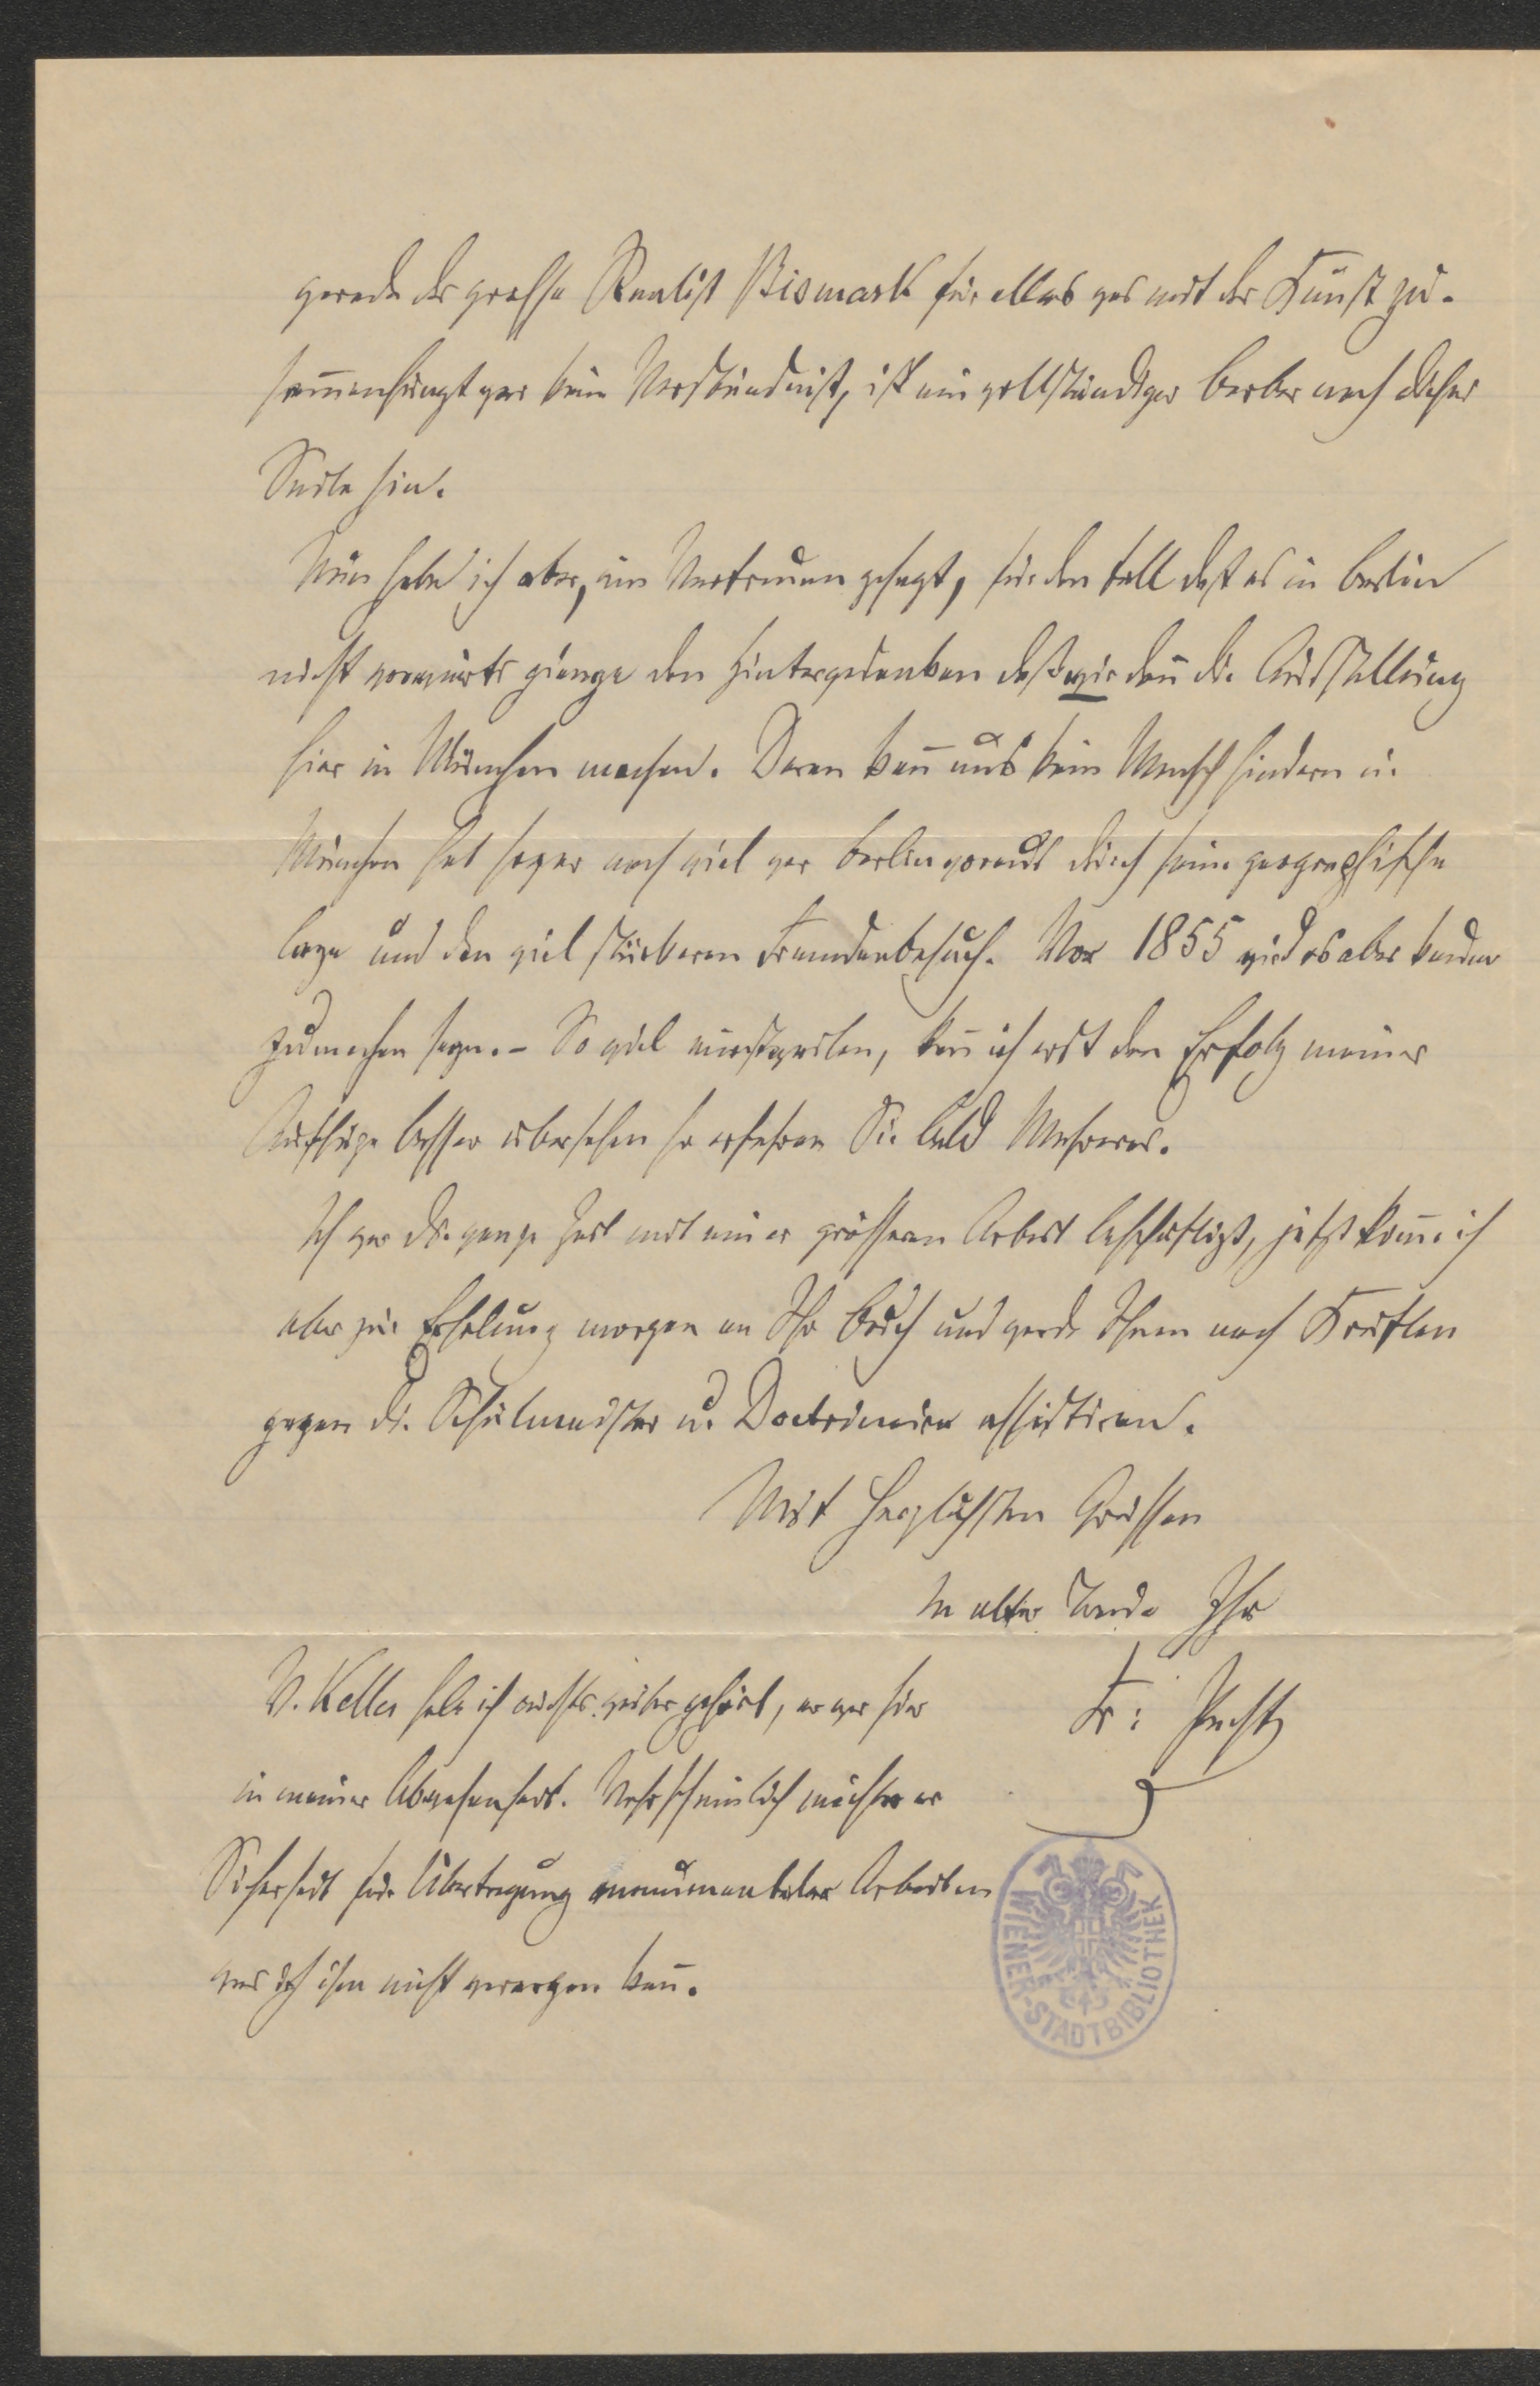 gerade der grosse Realist Bismark für alles was mit der Kunst zu-
sam̄enhängt gar kein Verständniß, ist ein vollständiger Barbar nach dieser
Seite hin.
Nun habe ich aber, im Vertrauen gesagt, für den Fall daß es in Berlin
nicht vorwärts gienge den Hintergedanken daß wir dan̄ die Ausstellung
hier in München machen. Daran kan̄ uns kein Mensch hindern u.
München hat sogar noch viel vor Berlin voraus durch seine geographische
Lage und den viel stärkeren Fremdenbesuch. Vor 1855 wird es aber kaum
zu machen seyn. – So viel einstweilen, kan̄ ich erst den Erfolg meiner
besser übersehen so erfahren Sie bald Mehreres.
Ich war die ganze Zeit mit einer grössern Arbeit beschäftigt, jetzt kom̄e ich
aber zur Erholung morgen an Ihr Buch und werde Ihnen nach Kräften
gegen die Schulmeister u. Doctrinaire assistiren.
Mit herzlichsten Grüssen
In alter Treue Ihr
Fr: Pecht
V. Keller habe ich nichts weiter gehört, er war hier
in meiner Abwesenheit. Wahrscheinlich möchte er
Sicherheit für Übertragung monumentaler Arbeiten
was ich ihm nicht verargen kan̄.
WIENER-STADTBIBLIOTHEK